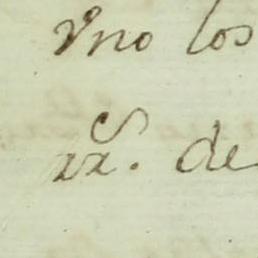 vno los
xx.s de